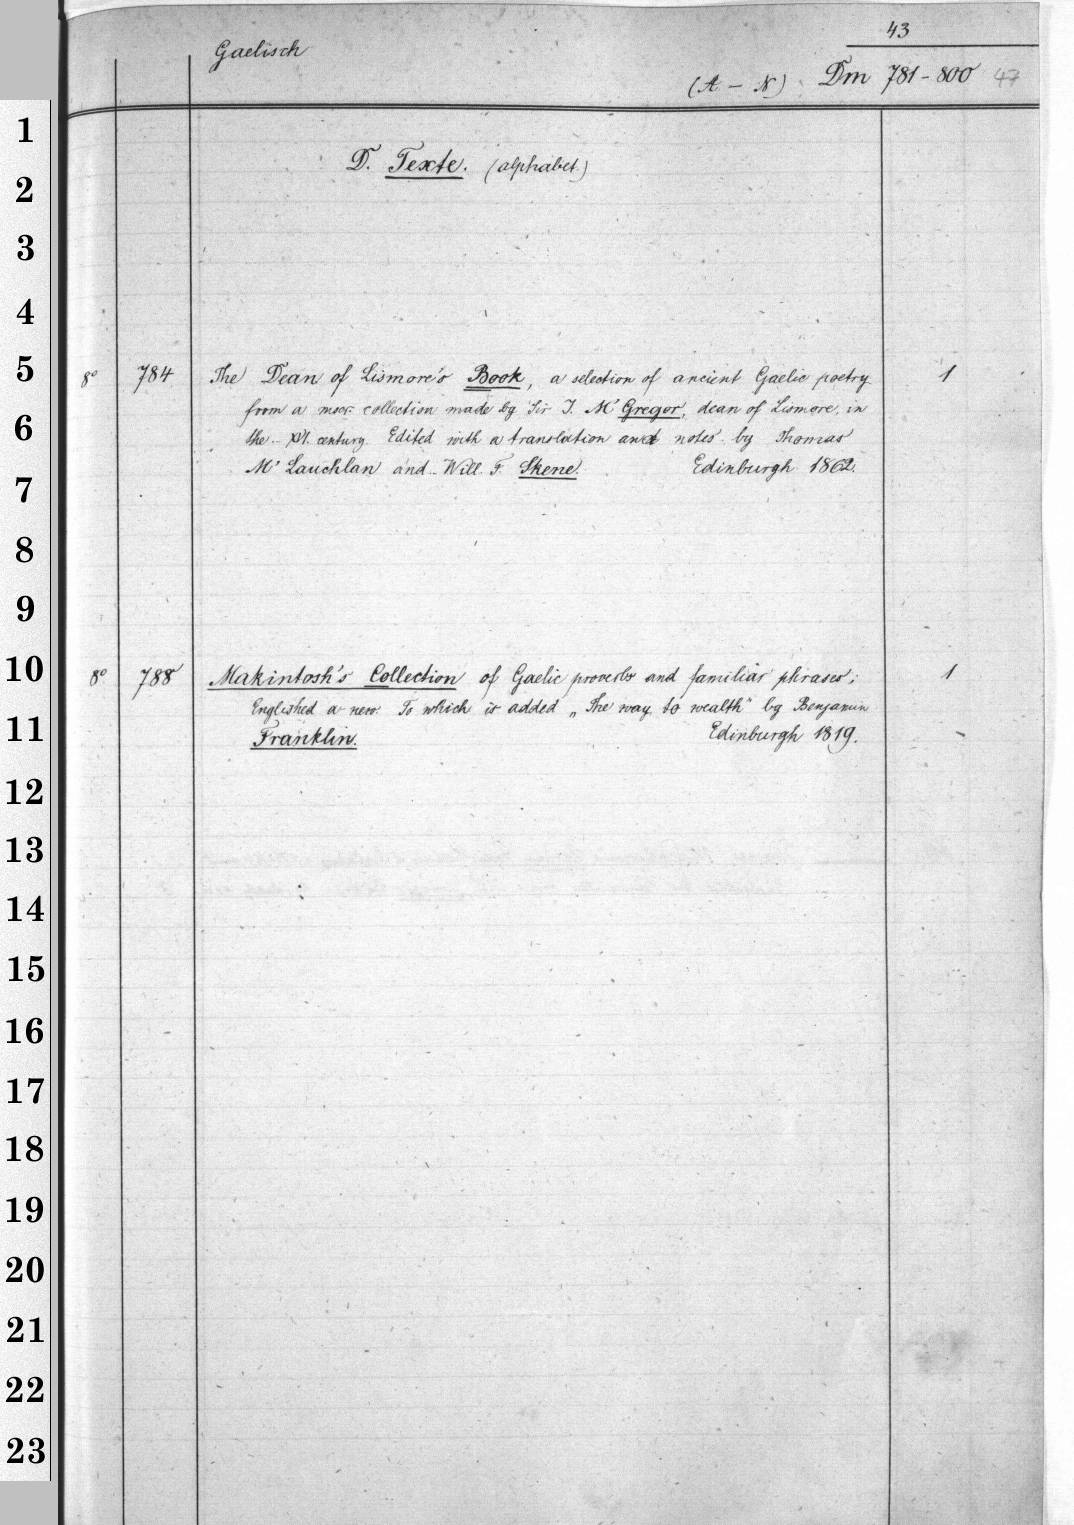 43
Gaelisch
(A – N) Dm 781-800 47
D. Texte. (alphabet.)
8° 784 The Dean of Lismore's Book, a selection of ancient Gaelic poetry 1
from a mscr. collection made by Sir J. Mc Gregor, dean of Lismore, in
the XVI. century. Edited with a translation and notes by Thomas
Mc Lauchlan and Will. F. Skene. Edinburgh 1862.
8° 788 Makintosh's Collection of Gaelic proverbs and familiar phrases; 1
Englished a new. To which is added „The way to wealth" by Benjamin
Franklin. Edinburgh 1819.
1
2
3
4
5
6
7
8
9
10
11
12
13
14
15
16
17
18
19
20
21
22
23